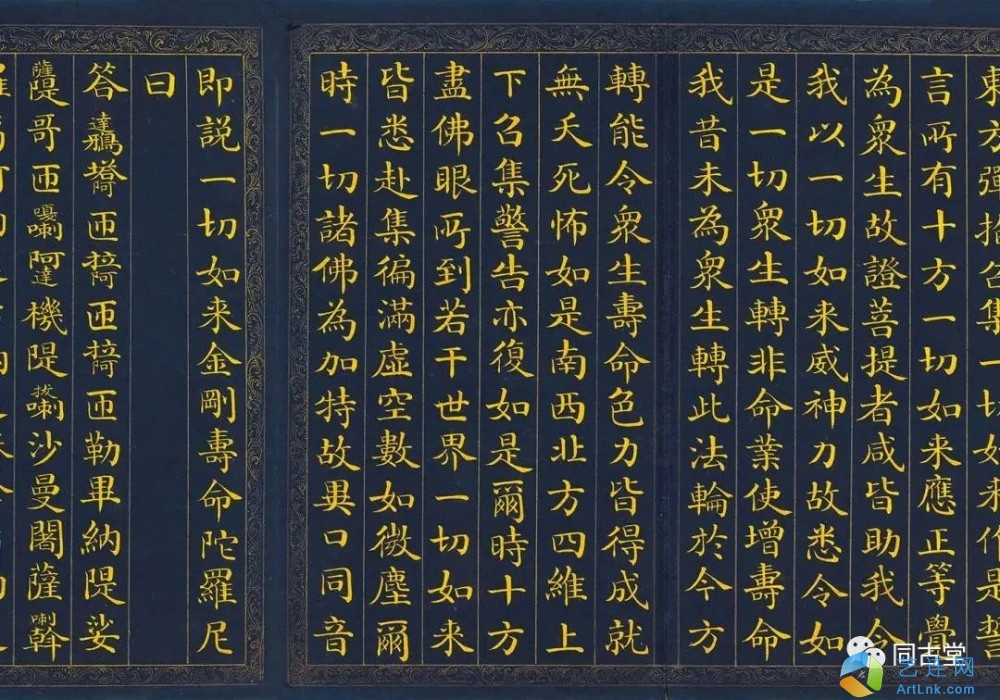 東方彈指召集一切如来作是誓
言所有十方一切如来應正等覺
為衆生故證菩提者咸皆助我令
我以一切如来威神力故悉令如
是一切衆生轉非命業使增壽命
我昔未為衆生轉此法輪於今方
轉能令衆生壽命色力皆得成就
無夭死怖如是南西北方四維上
下召集警告亦復如是爾時十方
盡佛眼所到若干世界一切如来
皆悉赴集徧滿虛空數如微塵爾
時一切諸佛為加持故異口同音
即說一切如来金剛壽命陀羅尼
曰
答達鵶塔喃匝揭匝揭匝勒畢納隄娑
薩隄哥匝嘎喇阿達機隄拔喇沙曼闍薩喇斡
同古堂
艺连网
ArtLnk.com